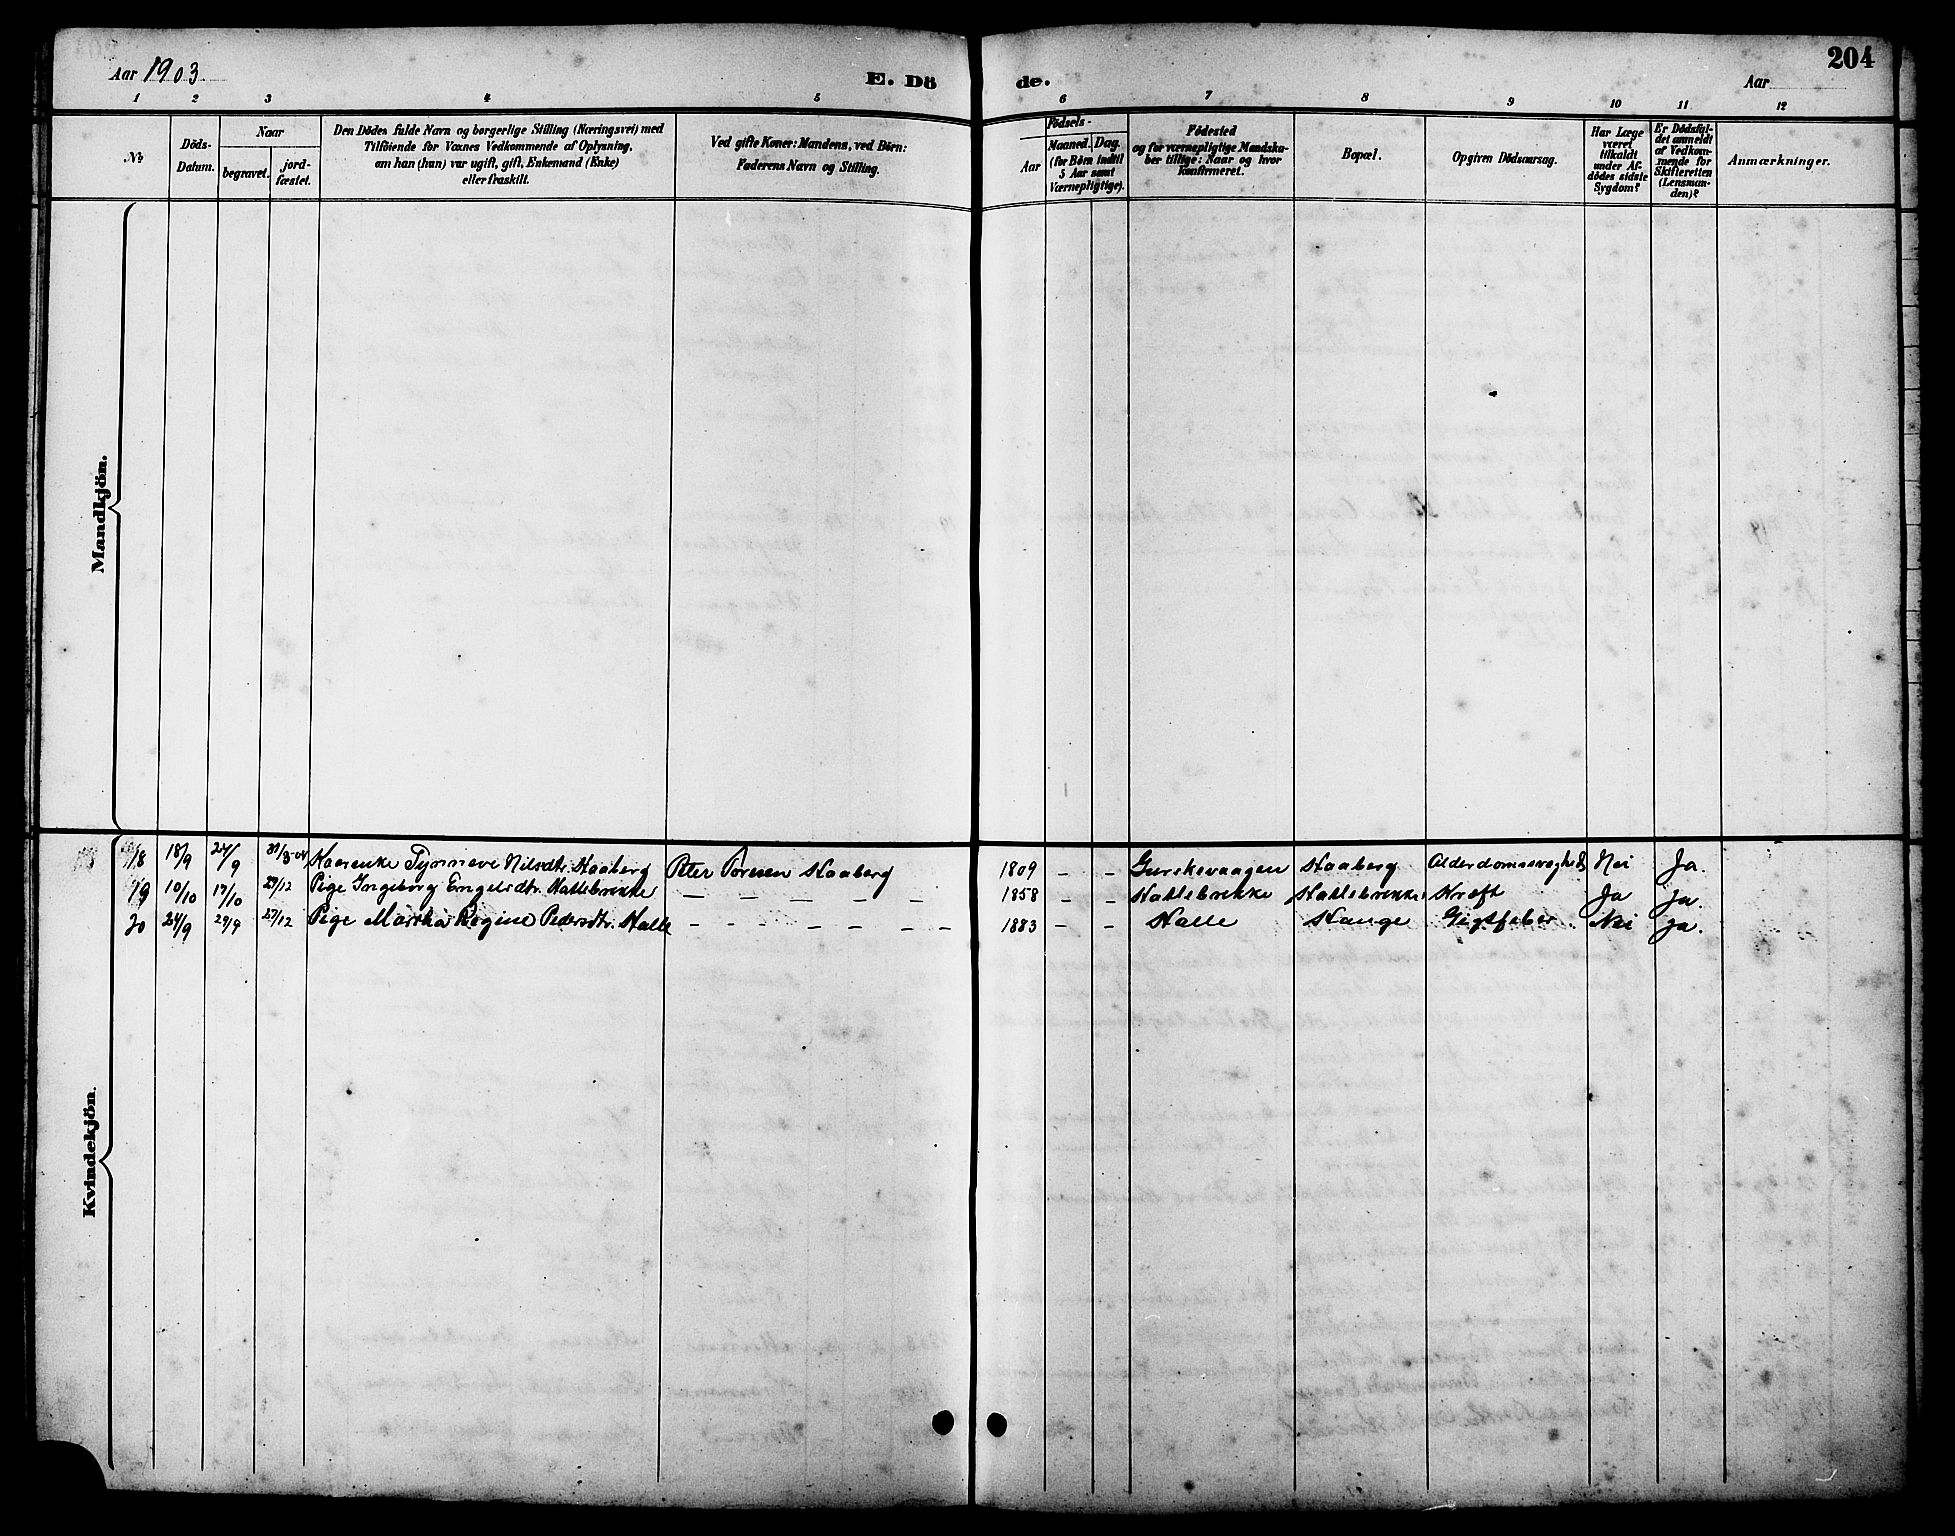 204
Aar 1903.
E. Dö
de.
Aar
1 2 3 4 5 6 7 8 9 10 11 12
№
Döds-
Datum.
Naar
begravet.
jord-
fæstet.
Den Dödes fulde Navn og borgerlige Stilling (Næringsvei) med
Tilföiende for Voxnes Vedkommende af Oplysning,
om han (hun) var ugift, gift, Enkemand (Enke)
eller fraskilt.
Ved gifte Koner: Mandens, ved Börn:
Faderens Navn og Stilling.
Födsels-
Aar
Maaned. Dag.
(for Börn indtil
5 Aar samt
Værnepligtige).
Födested
og for værnepligtige Mandska-
ber tillige: Naar og hvor
konfirmeret.
Bopæl.
Opgiven Dödsaarsag.
Har Læge
været
tilkaldt
under Af-
dödes sidste
Sygdom?
Er Dödsfal-
det anmeldt
af Vedkom-
mende for
Skifteretten
(Lensman-
den)?
Anmærkninger.
Mandkjön.
Kvindekjön.
18 18/9 24/9 Kaarenke Synneve Nilsdtr. Haaberg Peter Toresen Haaberg 1809 – – Gurskevaagen Haaberg Alderdomssvaghed Nei Ja.
19 10/10 17/10 27/12 Pige Ingeborg Engelsdtr. Hatlebrekke – – – – – – 1858 – – Hatlebrekke Hatlebrekke Kræft Ja Ja.
20 24/9 29/9 27/12 Pige Martha Regine Pedersdtr. Halle – – – – – – – 1883 – – Halle Hauge Gigtfeber Nei Ja.